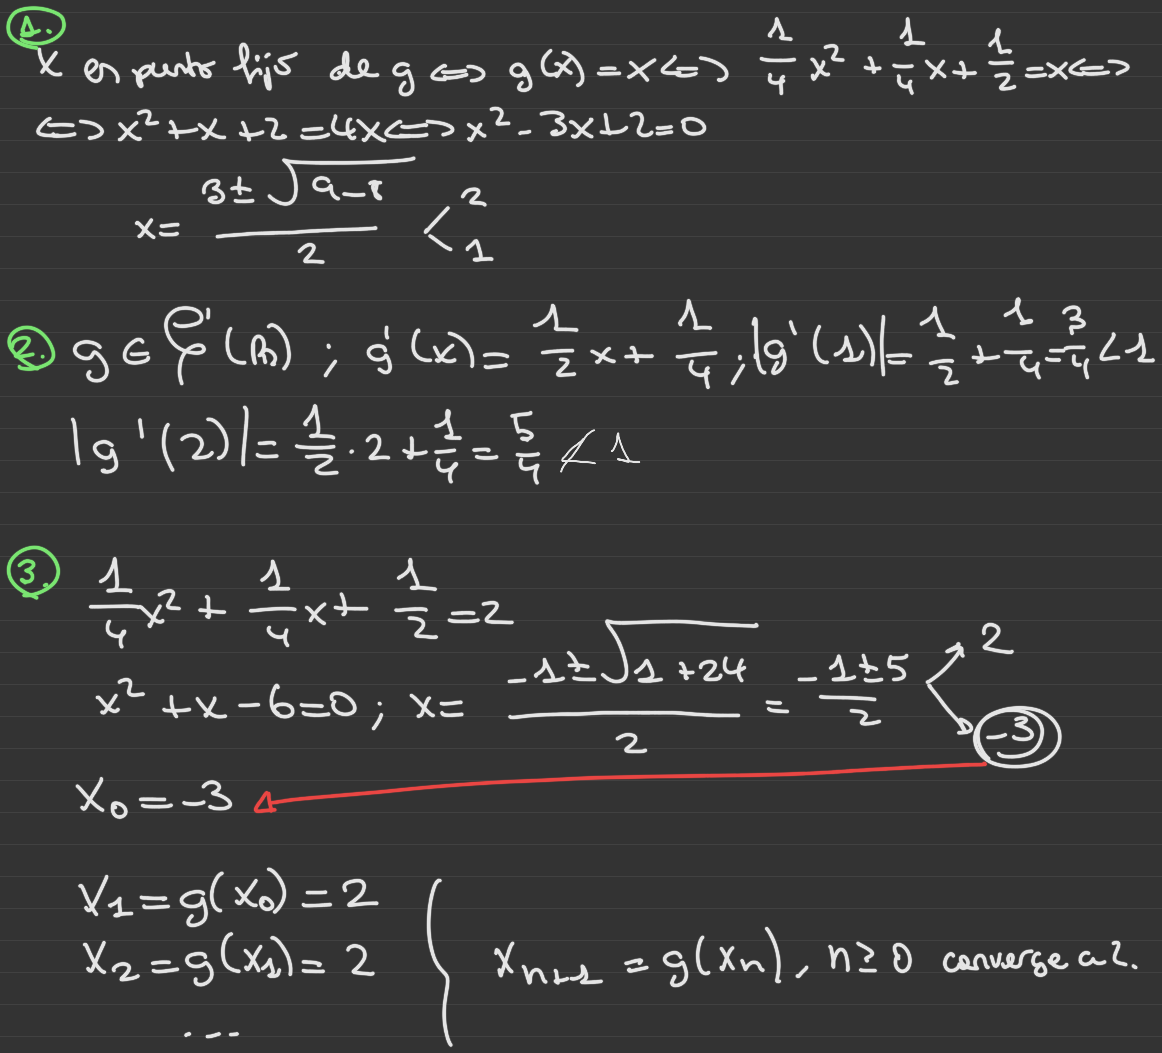 1.
x es punto fijo de g ⟺ g(x) = x ⟺ 1/4 x² + 1/4 x + 1/2 = x ⟺
⟺ x² + x + 2 = 4x ⟺ x² - 3x + 2 = 0
x = (3 ± √(9-8)) / 2 < 2, 1
2. g ∈ 𝒞¹(ℝ) ; g'(x) = 1/2 x + 1/4 ; |g'(1)| = 1/2 + 1/4 = 3/4 < 1
|g'(2)| = 1/2 · 2 + 1/4 = 5/4 ≮ 1
3. 1/4 x² + 1/4 x + 1/2 = 2
x² + x - 6 = 0 ; x = (-1 ± √(1+24)) / 2 = (-1 ± 5) / 2 → 2, → -3
x₀ = -3 ←
x₁ = g(x₀) = 2
x₂ = g(x₁) = 2
xₙ₊₁ = g(xₙ), n ≥ 0 converge a 2.
...